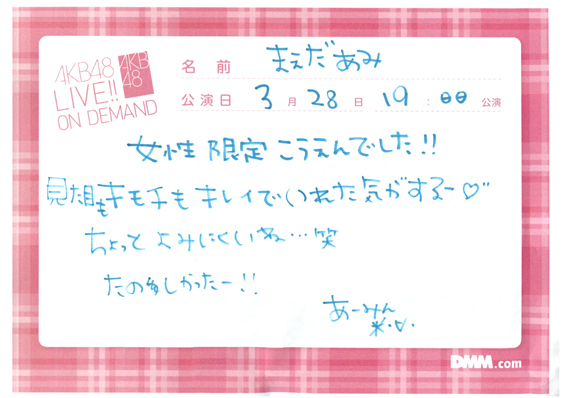 AKB48
LIVE!!
ON DEMAND
AKB
48
名前 まえだあみ
公演日 3月28日 19:00公演
女性限定こうえんでした!!
見た目もキモチもキレイでいれた気がするー♡"
ちょっとよみにくいね…笑
たのしかったー!!
あーみん
DMM.com